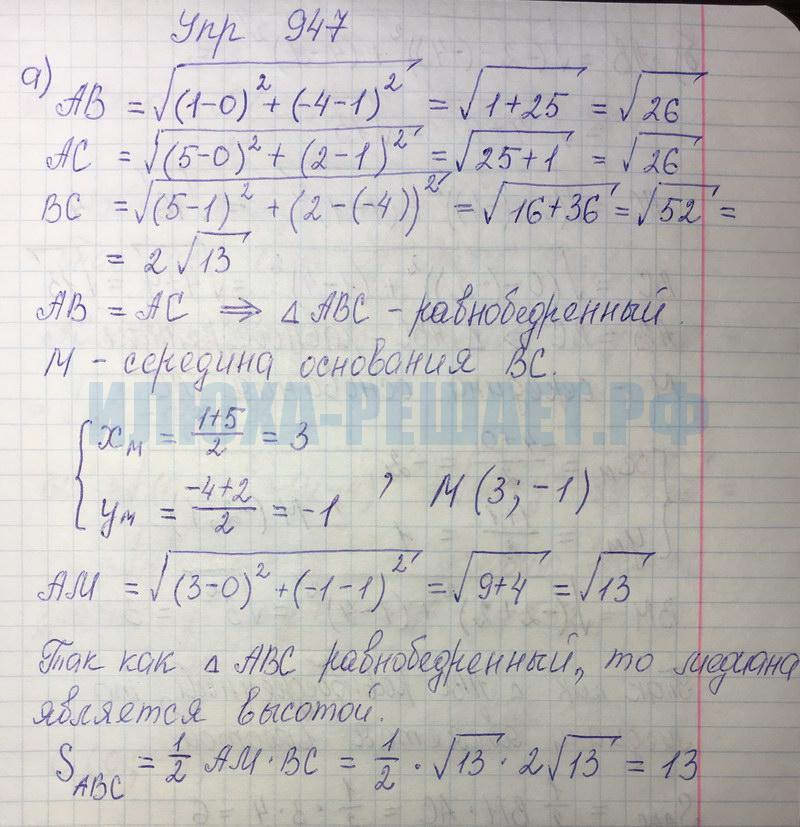 Упр 947
а) AB = √((1-0)² + (-4-1)²) = √(1+25) = √26
AC = √((5-0)² + (2-1)²) = √(25+1) = √26
BC = √((5-1)² + (2-(-4))²) = √(16+36) = √52 =
= 2√13
AB = AC ⇒ △ABC - равнобедренный.
M - середина основания BC.
ИЛЮХА-РЕШАЕТ.РФ
{ xм = (1+5)/2 = 3
yм = (-4+2)/2 = -1 , M(3; -1)
AM = √((3-0)² + (-1-1)²) = √(9+4) = √13
Так как △ABC равнобедренный, то медиана
является высотой.
S_ABC = 1/2 AM · BC = 1/2 · √13 · 2√13 = 13